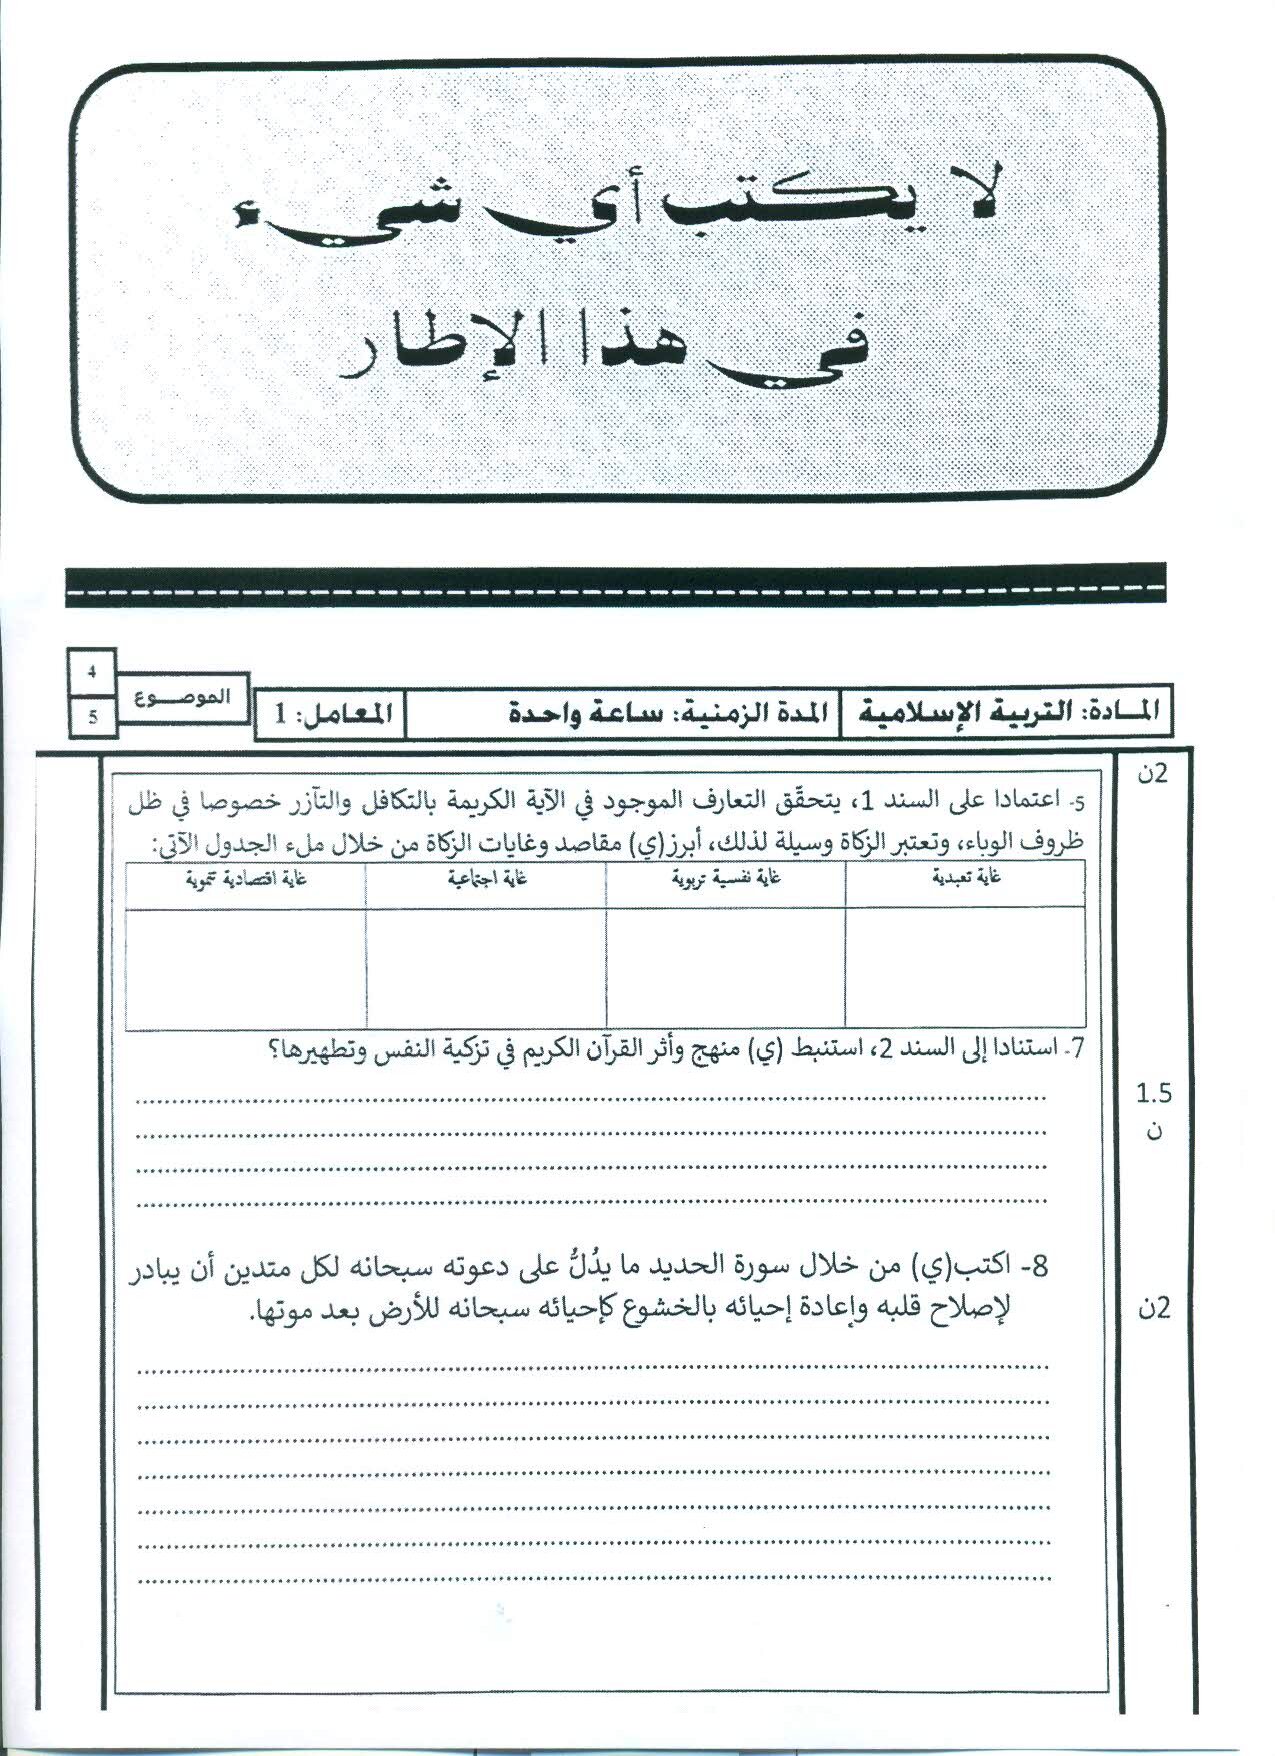 لا يكتب أي شيء
في هذا الإطار
المـادة: التربية الإسلامية
المدة الزمنية: ساعة واحدة
المعامل: 1
الموضـــوع
4
5
2ن
5- اعتمادا على السند 1، يتحقّق التعارف الموجود في الآية الكريمة بالتكافل والتآزر خصوصا في ظل
ظروف الوباء، وتعتبر الزكاة وسيلة لذلك، أبرز(ي) مقاصد وغايات الزكاة من خلال ملء الجدول الآتي:
غاية تعبدية
غاية نفسية تربوية
غاية اجتماعية
غاية اقتصادية تنموية
7- استنادا إلى السند 2، استنبط (ي) منهج وأثر القرآن الكريم في تزكية النفس وتطهيرها؟
1.5
ن
8- اكتب(ي) من خلال سورة الحديد ما يدُلُّ على دعوته سبحانه لكل متدين أن يبادر
لإصلاح قلبه وإعادة إحيائه بالخشوع كإحيائه سبحانه للأرض بعد موتها.
2ن